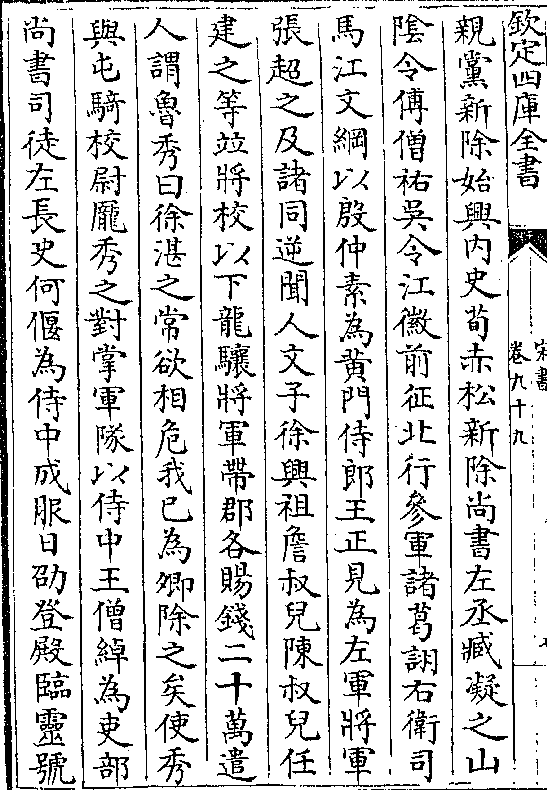 欽定四庫全書
宋書
卷九十九
親黨新除始興內史荀赤松新除尚書左丞臧凝之山
陰令傅僧祐吳令江徽前征北行參軍諸葛詡右衛司
馬江文綱以殷仲素為黃門侍郎王正見為左軍將軍
張超之及諸同逆聞人文子徐興祖詹叔兒陳叔兒任
建之等竝將校以下龍驤將軍帶郡各賜錢二十萬遣
人謂魯秀曰徐湛之常欲相危我已為卿除之矣使秀
與屯騎校尉龎秀之對掌軍隊以侍中王僧綽為吏部
尚書司徒左長史何偃為侍中成服日劭登殿臨靈號